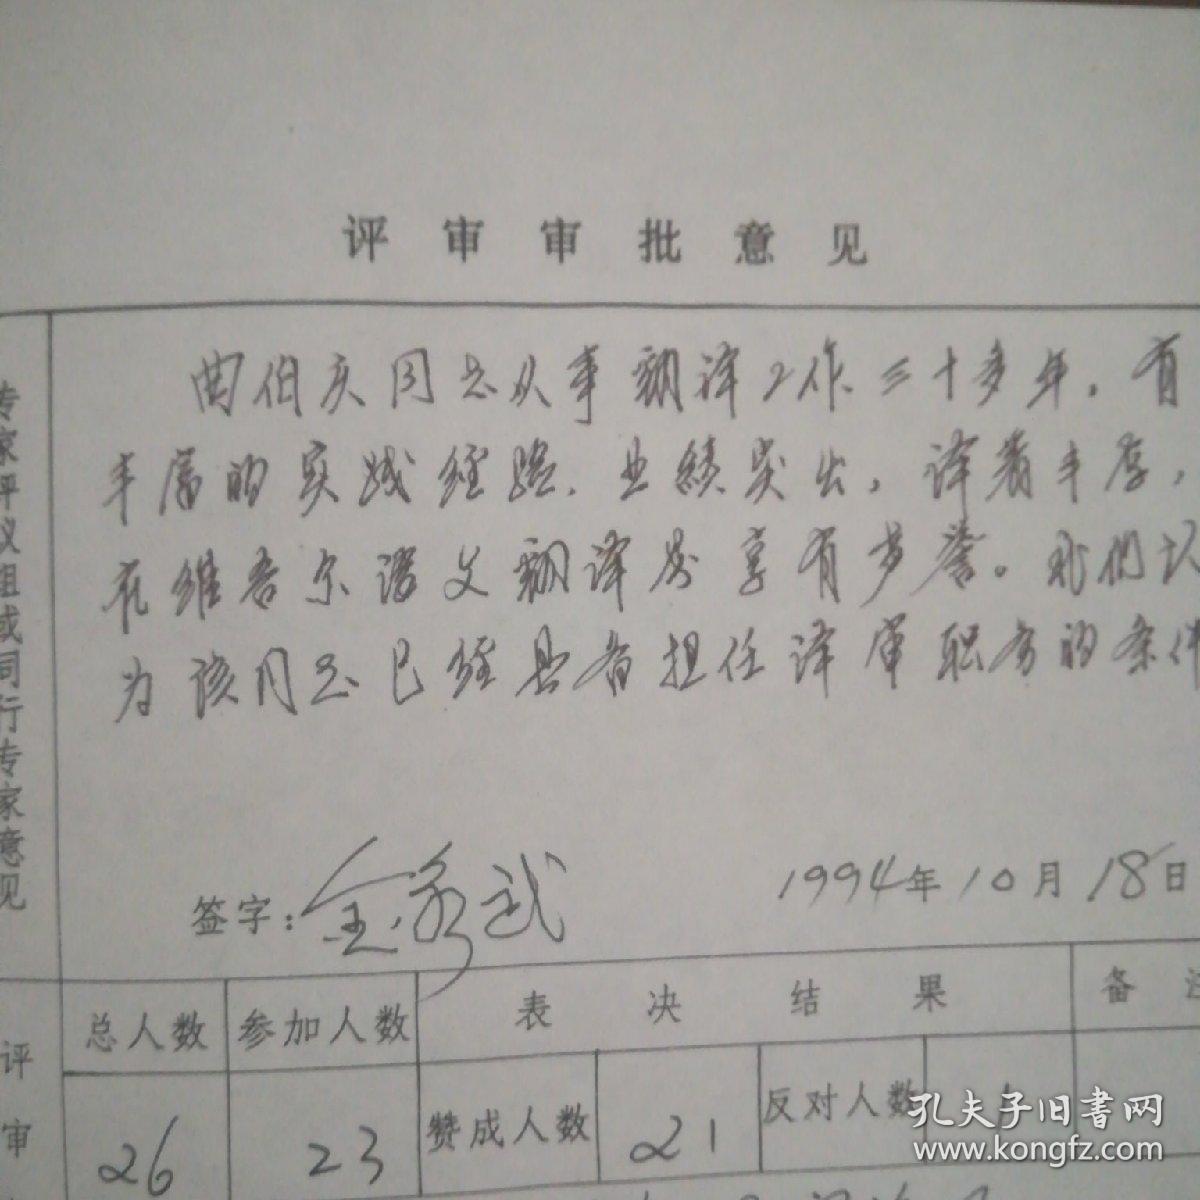 评审审批意见
专家评议组或同行专家意见
曲伯庆同志从事翻译工作三十多年，有
丰富的实践经验，业绩突出，译著丰厚，
在维吾尔语文翻译界享有声誉。我们认
为该同志已经具备担任译审职务的条件
签字：
1994年10月18日
评审
总人数 参加人数 表决结果 备注
26 23 赞成人数 21 反对人数
孔夫子旧书网
www.kongfz.com